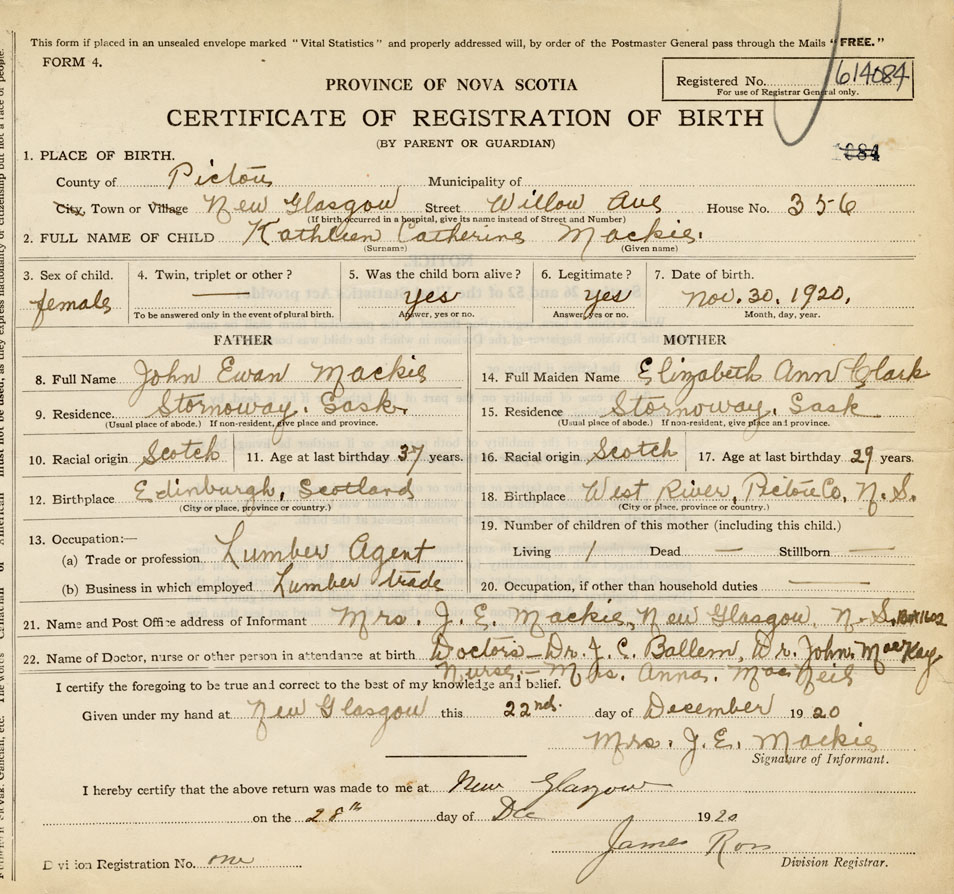 This form if placed in an unsealed envelope marked "Vital Statistics" and properly addressed will, by order of the Postmaster General pass through the Mails "FREE."
FORM 4.
Registered No. 614084
For use of Registrar General only.
PROVINCE OF NOVA SCOTIA
CERTIFICATE OF REGISTRATION OF BIRTH
(BY PARENT OR GUARDIAN)
1084
1. PLACE OF BIRTH.
County of Pictou Municipality of
City, Town or Village New Glasgow Street Willow Ave House No. 356
(If birth occurred in a hospital, give its name instead of Street and Number)
2. FULL NAME OF CHILD Kathleen Catherine Mackie.
(Surname) (Given name)
3. Sex of child. female
4. Twin, triplet or other? —
To be answered only in the event of plural birth.
5. Was the child born alive? yes
Answer, yes or no.
6. Legitimate? yes
Answer, yes or no.
7. Date of birth. Nov. 30. 1920.
Month, day, year.
FATHER
8. Full Name John Ewan Mackie
9. Residence. Stornoway. Sask.
(Usual place of abode.) If non-resident, give place and province.
10. Racial origin Scotch 11. Age at last birthday 37 years.
12. Birthplace Edinburgh, Scotland
(City or place, province or country.)
13. Occupation:—
(a) Trade or profession Lumber Agent
(b) Business in which employed Lumber trade
MOTHER
14. Full Maiden Name Elizabeth Ann Clark
15. Residence Stornoway. Sask
(Usual place of abode.) If non-resident, give place and province.
16. Racial origin Scotch 17. Age at last birthday 29 years.
18. Birthplace West River, Pictou Co, N. S.
(City or place, province or country.)
19. Number of children of this mother (including this child.)
Living 1 Dead — Stillborn —
20. Occupation, if other than household duties —
21. Name and Post Office address of Informant Mrs. J. E. Mackie, New Glasgow, N. S. Box 1602
22. Name of Doctor, nurse or other person in attendance at birth Doctors – Dr. J. C. Ballem, Dr. John. MacKay
Nurse, – Mrs. Anna. MacNeil
I certify the foregoing to be true and correct to the best of my knowledge and belief.
Given under my hand at New Glasgow this 22nd. day of December 1920
Mrs. J. E. Mackie
Signature of Informant.
I hereby certify that the above return was made to me at New Glasgow
on the 28th day of Dec 1920
James Ross
Division Registrar.
Division Registration No. one